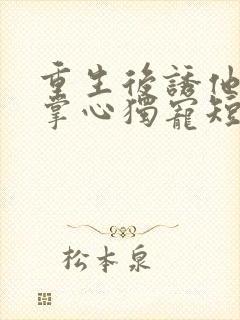 重生後誘他
掌心獨寵短
松本泉